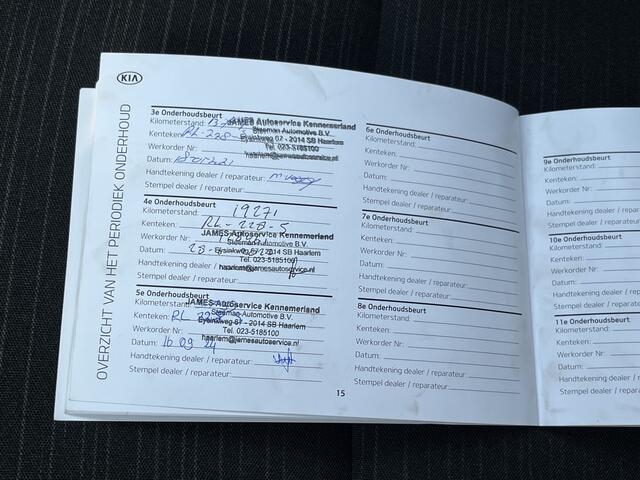 KIA
OVERZICHT VAN HET PERIODIEK ONDERHOUD
3e Onderhoudsbeurt
Kilometerstand:
JAMES Autoservice Kennemerland
Steeman Automotive B.V.
Kenteken: RL-228-S
Eysinkweg 67 - 2014 SB Haarlem
Werkorder Nr
Tel. 023-5185100
haarlem@jamesautoservice.nl
Datum:
Handtekening dealer / reparateur:
Stempel dealer / reparateur:
4e Onderhoudsbeurt
Kilometerstand: 19271
Kenteken: RL-228-S
JAMES Autoservice Kennemerland
Werkorder Nr
Steeman Automotive B.V.
Datum: 28-
Eysinkweg 67 - 2014 SB Haarlem
Tel. 023-5185100
Handtekening dealer / reparateur:
haarlem@jamesautoservice.nl
Stempel dealer / reparateur:
5e Onderhoudsbeurt
Kilometerstand:
JAMES Autoservice Kennemerland
Steeman Automotive B.V.
Kenteken: RL
Eysinkweg 67 - 2014 SB Haarlem
Werkorder Nr
Tel. 023-5185100
haarlem@jamesautoservice.nl
Datum: 16 09 24
Handtekening dealer / reparateur:
Stempel dealer / reparateur:
6e Onderhoudsbeurt
Kilometerstand:
Kenteken:
Werkorder Nr
Datum:
Handtekening dealer / reparateur:
Stempel dealer / reparateur:
7e Onderhoudsbeurt
Kilometerstand:
Kenteken:
Werkorder Nr
Datum:
Handtekening dealer / reparateur:
Stempel dealer / reparateur:
8e Onderhoudsbeurt
Kilometerstand:
Kenteken:
Werkorder Nr
Datum:
Handtekening dealer / reparateur:
Stempel dealer / reparateur:
15
9e Onderhoudsbeurt
Kilometerstand:
Kenteken:
Werkorder Nr
Datum:
Handtekening dealer / repa
Stempel dealer / reparateu
10e Onderhoudsbeurt
Kilometerstand:
Kenteken:
Werkorder Nr
Datum:
Handtekening dealer /
Stempel dealer / repar
11e Onderhoudsbeurt
Kilometerstand:
Kenteken:
Werkorder Nr
Datum:
Handtekening deale
Stempel dealer / re